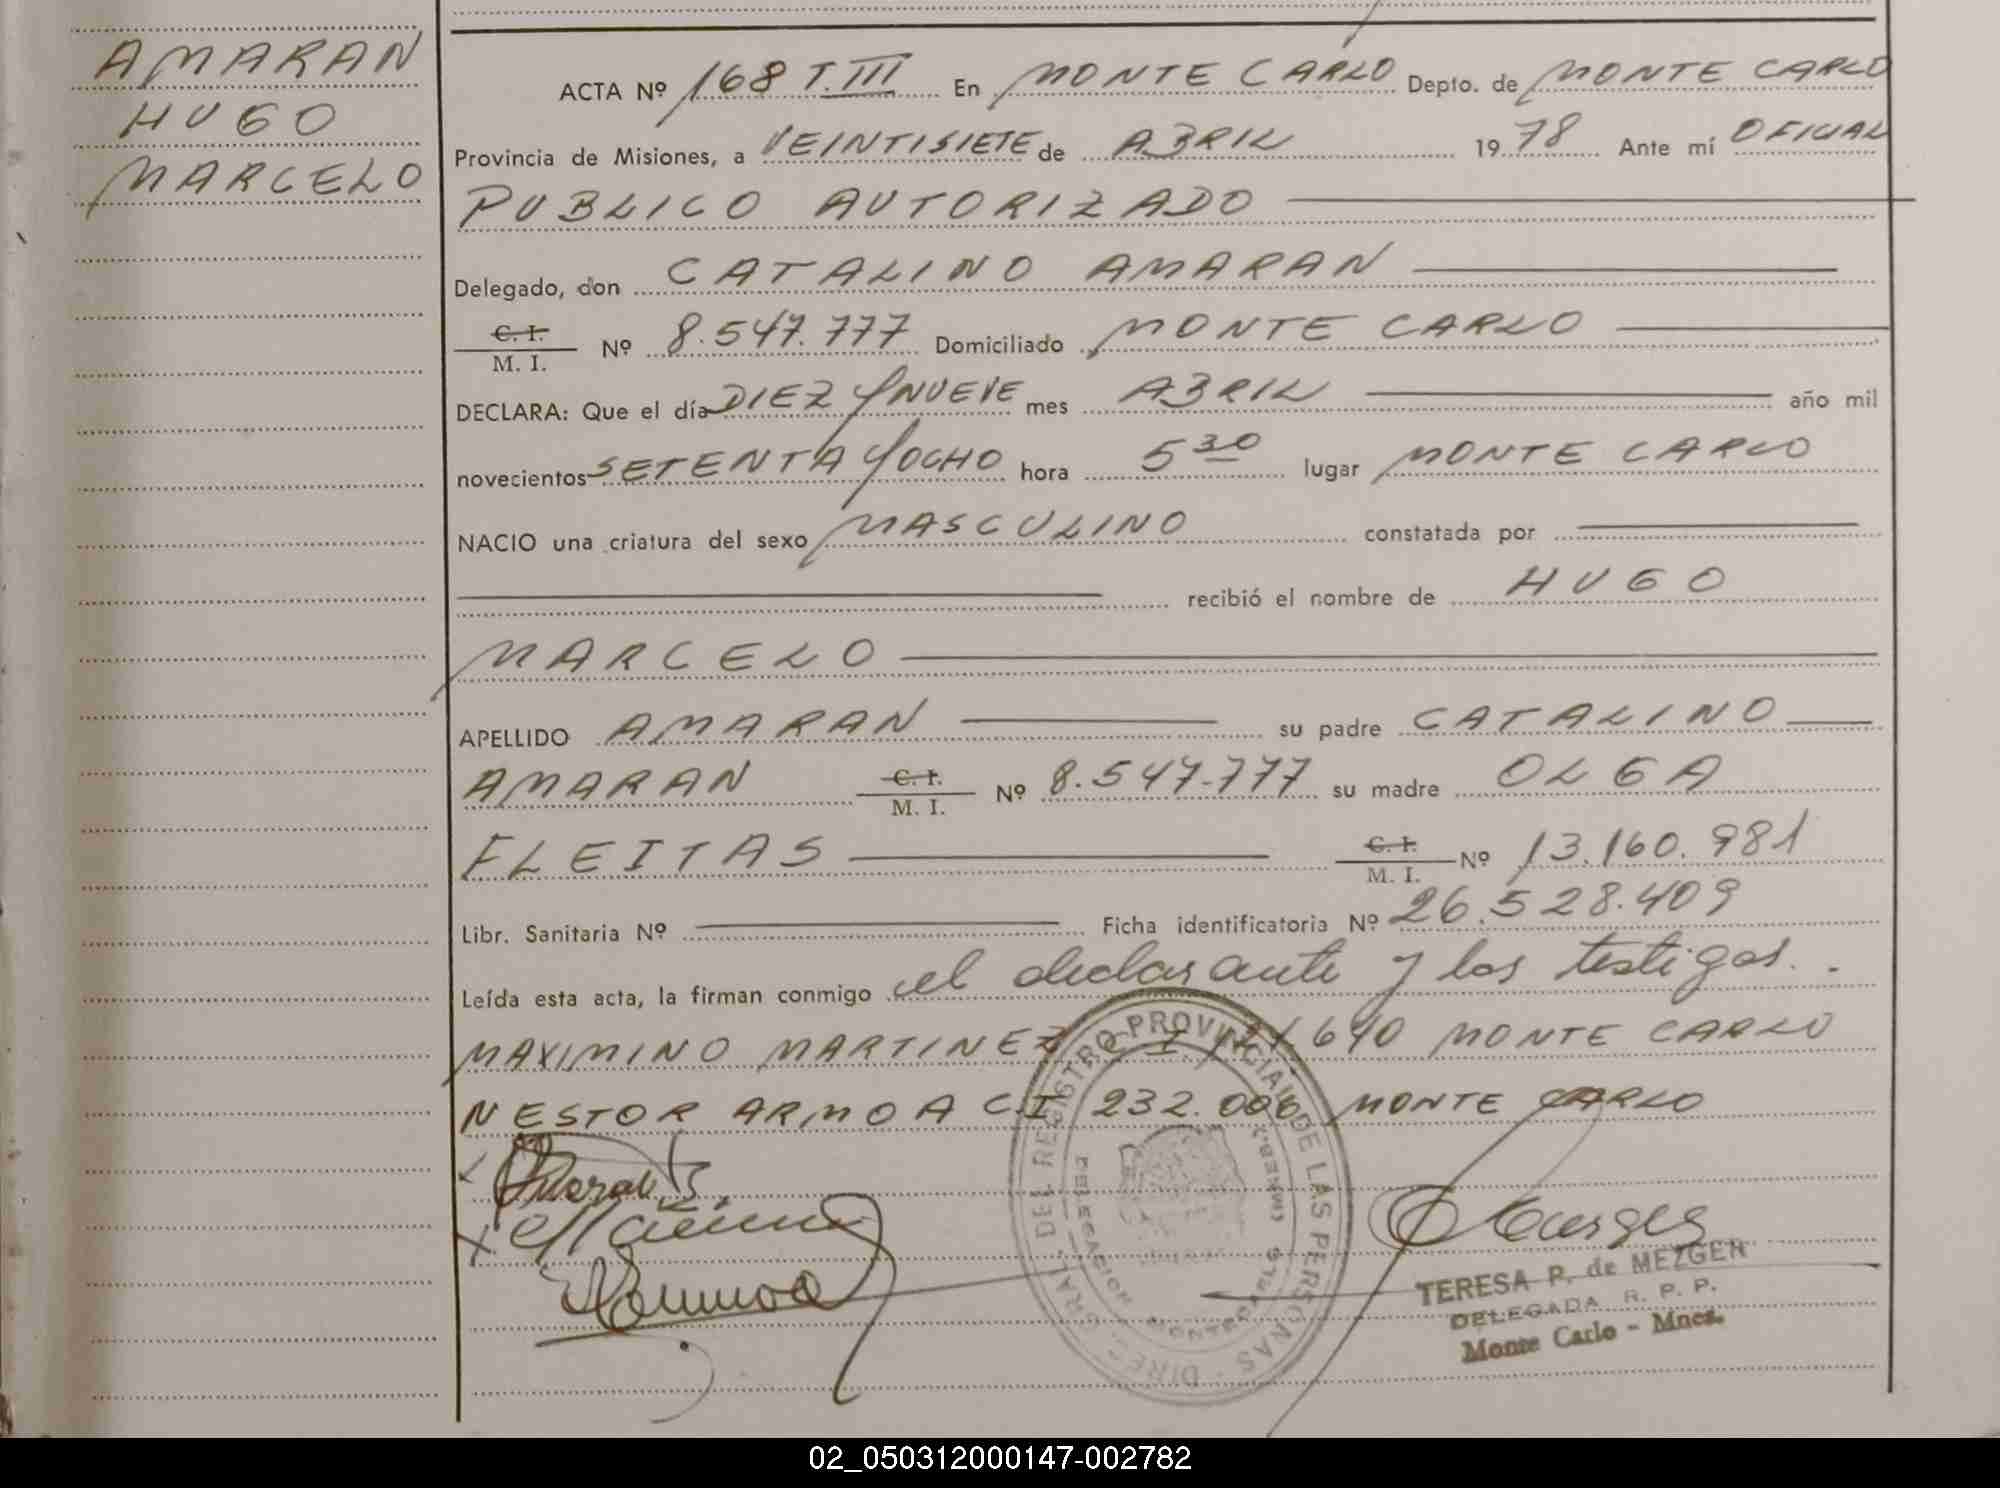 AMARAN
HUGO
MARCELO
ACTA Nº 168 T. III En MONTE CARLO Depto. de MONTE CARLO
Provincia de Misiones, a VEINTISIETE de ABRIL 1978 Ante mí OFICIAL
PUBLICO AUTORIZADO
Delegado, don CATALINO AMARAN
C. I.
M. I. Nº 8.547.777 Domiciliado MONTE CARLO
DECLARA: Que el día DIEZ Y NUEVE mes ABRIL año mil
novecientos SETENTA Y OCHO hora 5 30 lugar MONTE CARLO
NACIO una criatura del sexo MASCULINO constatada por
recibió el nombre de HUGO
MARCELO
APELLIDO AMARAN su padre CATALINO
AMARAN C. I. M. I. Nº 8.547.777 su madre OLGA
FLEITAS C. I. M. I. Nº 13.160.981
Libr. Sanitaria Nº Ficha identificatoria Nº 26.528.409
Leída esta acta, la firman conmigo el declarante y los testigos.
MAXIMINO MARTINEZ C I 640 MONTE CARLO
NESTOR ARMOA C.I 232.006 MONTE CARLO
DIREC. GRAL. DEL REGISTRO PROVINCIAL DE LAS PERSONAS
DELEGACION MONTECARLO
TERESA P. de MEZGER
DELEGADA R. P. P.
Monte Carlo - Mnes.
02_050312000147-002782